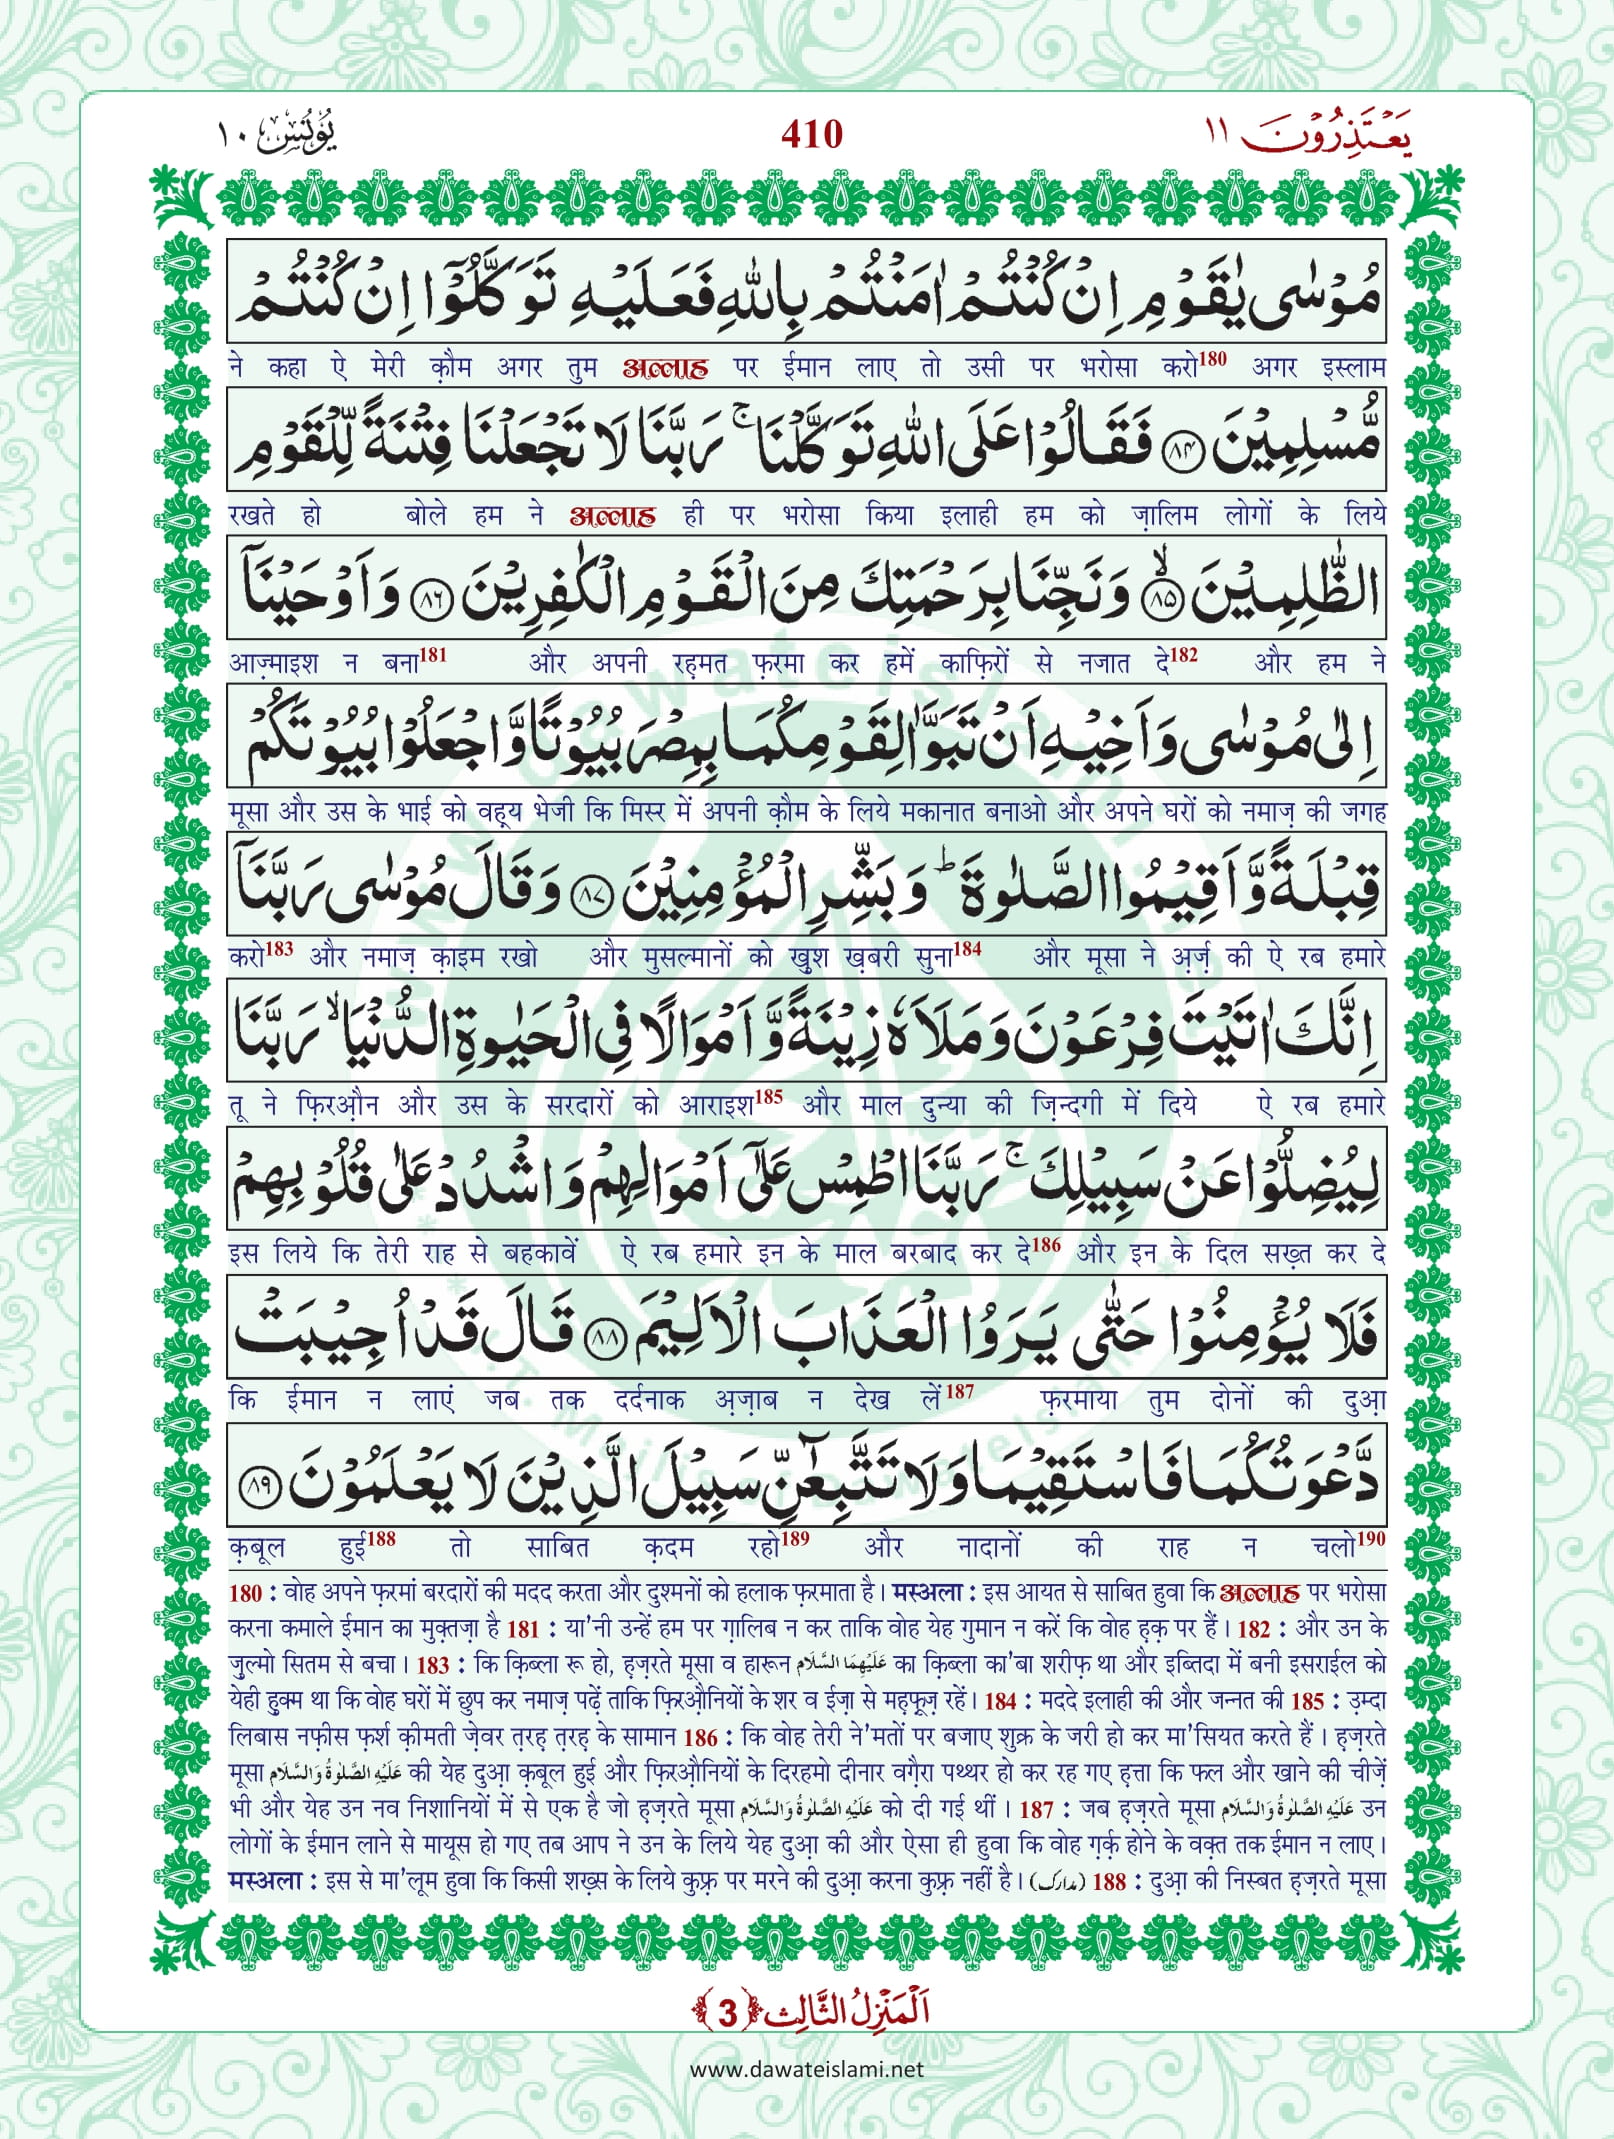 يَعْتَذِرُوْنَ ١١
410
يُوْنُس ١٠
مُوْسٰى يٰقَوْمِ اِنْ كُنْتُمْ اٰمَنْتُمْ بِاللّٰهِ فَعَلَیْهِ تَوَكَّلُوْۤا اِنْ كُنْتُمْ
ने कहा ऐ मेरी क़ौम अगर तुम अल्लाह पर ईमान लाए तो उसी पर भरोसा करो180 अगर इस्लाम
مُّسْلِمِیْنَ ﴿۸۴﴾ فَقَالُوْا عَلَى اللّٰهِ تَوَكَّلْنَا ۚ رَبَّنَا لَا تَجْعَلْنَا فِتْنَةً لِّلْقَوْمِ
रखते हो बोले हम ने अल्लाह ही पर भरोसा किया इलाही हम को ज़ालिम लोगों के लिये
الظّٰلِمِیْنَ ﴿ۙ۸۵﴾ وَ نَجِّنَا بِرَحْمَتِكَ مِنَ الْقَوْمِ الْكٰفِرِیْنَ ﴿۸۶﴾ وَ اَوْحَیْنَاۤ
आज़्माइश न बना181 और अपनी रह़मत फ़रमा कर हमें काफ़िरों से नजात दे182 और हम ने
اِلٰى مُوْسٰى وَ اَخِیْهِ اَنْ تَبَوَّاٰ لِقَوْمِكُمَا بِمِصْرَ بُیُوْتًا وَّ اجْعَلُوْا بُیُوْتَكُمْ
मूसा और उस के भाई को वह़्य भेजी कि मिस्र में अपनी क़ौम के लिये मकानात बनाओ और अपने घरों को नमाज़ की जगह
قِبْلَةً وَّ اَقِیْمُوا الصَّلٰوةَ ؕ وَ بَشِّرِ الْمُؤْمِنِیْنَ ﴿۸۷﴾ وَ قَالَ مُوْسٰى رَبَّنَاۤ
करो183 और नमाज़ क़ाइम रखो और मुसल्मानों को खुश ख़बरी सुना184 और मूसा ने अ़र्ज़ की ऐ रब हमारे
اِنَّكَ اٰتَیْتَ فِرْعَوْنَ وَ مَلَاَهٗ زِیْنَةً وَّ اَمْوَالًا فِی الْحَیٰوةِ الدُّنْیَا ۙ رَبَّنَا
तू ने फ़िरऔ़न और उस के सरदारों को आराइश185 और माल दुन्या की ज़िन्दगी में दिये ऐ रब हमारे
لِیُضِلُّوْا عَنْ سَبِیْلِكَ ۚ رَبَّنَا اطْمِسْ عَلٰۤى اَمْوَالِهِمْ وَ اشْدُدْ عَلٰى قُلُوْبِهِمْ
इस लिये कि तेरी राह से बहकावें ऐ रब हमारे इन के माल बरबाद कर दे186 और इन के दिल सख़्त कर दे
فَلَا یُؤْمِنُوْا حَتّٰى یَرَوُا الْعَذَابَ الْاَلِیْمَ ﴿۸۸﴾ قَالَ قَدْ اُجِیْبَتْ
कि ईमान न लाएं जब तक दर्दनाक अ़ज़ाब न देख लें187 फ़रमाया तुम दोनों की दुआ़
دَّعْوَتُكُمَا فَاسْتَقِیْمَا وَ لَا تَتَّبِعٰٓنِّ سَبِیْلَ الَّذِیْنَ لَا یَعْلَمُوْنَ ﴿۸۹﴾
क़बूल हुई188 तो साबित क़दम रहो189 और नादानों की राह न चलो190
180 : वोह अपने फ़रमां बरदारों की मदद करता और दुश्मनों को हलाक फ़रमाता है। मस्अला : इस आयत से साबित हुवा कि अल्लाह पर भरोसा
करना कमाले ईमान का मुक़्तज़ा है 181 : या'नी उन्हें हम पर ग़ालिब न कर ताकि वोह येह गुमान न करें कि वोह ह़क़ पर हैं। 182 : और उन के
ज़ुल्मो सितम से बचा। 183 : कि क़िब्ला रू हो, ह़ज़रते मूसा व हारून عَلَیْهِمَا السَّلَام का क़िब्ला का'बा शरीफ़ था और इब्तिदा में बनी इसराईल को
येही हुक्म था कि वोह घरों में छुप कर नमाज़ पढ़ें ताकि फ़िरऔ़नियों के शर व ईज़ा से मह़फ़ूज़ रहें। 184 : मददे इलाही की और जन्नत की 185 : उ़म्दा
लिबास नफ़ीस फ़र्श क़ीमती ज़ेवर त़रह़ त़रह़ के सामान 186 : कि वोह तेरी ने'मतों पर बजाए शुक्र के जरी हो कर मा'सियत करते हैं। ह़ज़रते
मूसा عَلَیْهِ الصَّلٰوةُ وَالسَّلَام की येह दुआ़ क़बूल हुई और फ़िरऔ़नियों के दिरहमो दीनार वग़ैरा पथ्थर हो कर रह गए ह़त्ता कि फल और खाने की चीज़ें
भी और येह उन नव निशानियों में से एक है जो ह़ज़रते मूसा عَلَیْهِ الصَّلٰوةُ وَالسَّلَام को दी गई थीं। 187 : जब ह़ज़रते मूसा عَلَیْهِ الصَّلٰوةُ وَالسَّلَام उन
लोगों के ईमान लाने से मायूस हो गए तब आप ने उन के लिये येह दुआ़ की और ऐसा ही हुवा कि वोह ग़र्क़ होने के वक़्त तक ईमान न लाए।
मस्अला : इस से मा'लूम हुवा कि किसी शख़्स के लिये कुफ़्र पर मरने की दुआ़ करना कुफ़्र नहीं है। (مدارک) 188 : दुआ़ की निस्बत ह़ज़रते मूसा
اَلْمَنْزِلُ الثَّالِث ﴿3﴾
www.dawateislami.net